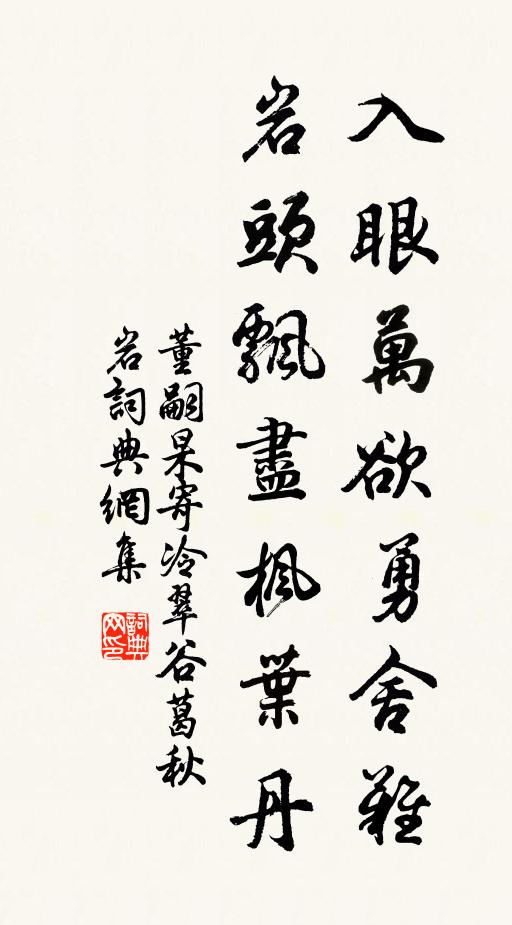 入眼萬欲勇舍難
岩頭飄盡楓葉丹
董嗣杲寄冷翠谷葛秋
岩詞典網集
詞典网印